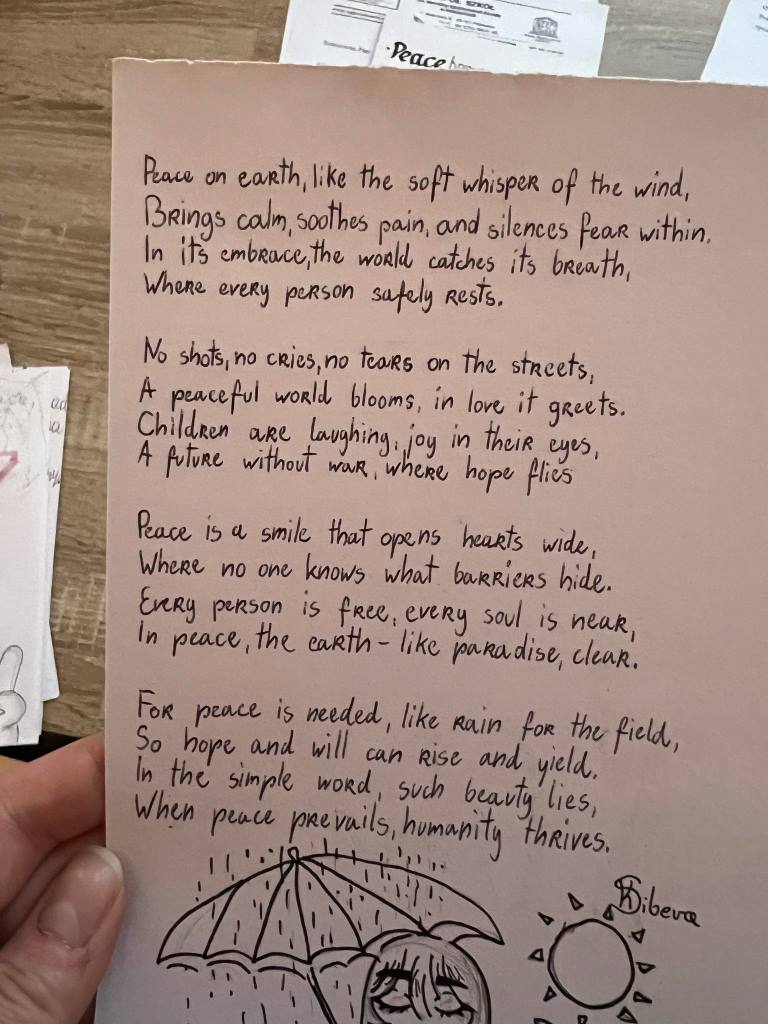 SZKÓŁ
Peace
Peace on earth, like the soft whisper of the wind,
Brings calm, soothes pain, and silences fear within.
In its embrace, the world catches its breath,
Where every person safely rests.
No shots, no cries, no tears on the streets,
A peaceful world blooms, in love it greets.
Children are laughing, joy in their eyes,
A future without war, where hope flies
Peace is a smile that opens hearts wide,
Where no one knows what barriers hide.
Every person is free, every soul is near,
In peace, the earth – like paradise, clear.
For peace is needed, like rain for the field,
So hope and will can rise and yield.
In the simple word, such beauty lies,
When peace prevails, humanity thrives.